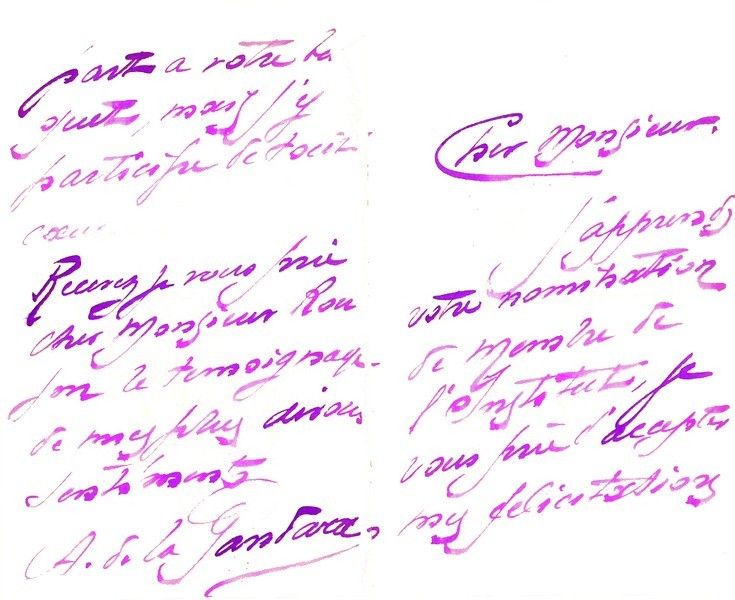 Cher Monsieur.
J'apprends
votre nomination
de membre de
l'Institut, je
vous prie d'accepter
mes felicitations
part a votre ba
quet, mais j'y
participe de tout
coeur
Recevez je vous prie
cher Monsieur Rou
jon le temoignage
de mes plus devoués
sentiments
A. de la Gandara